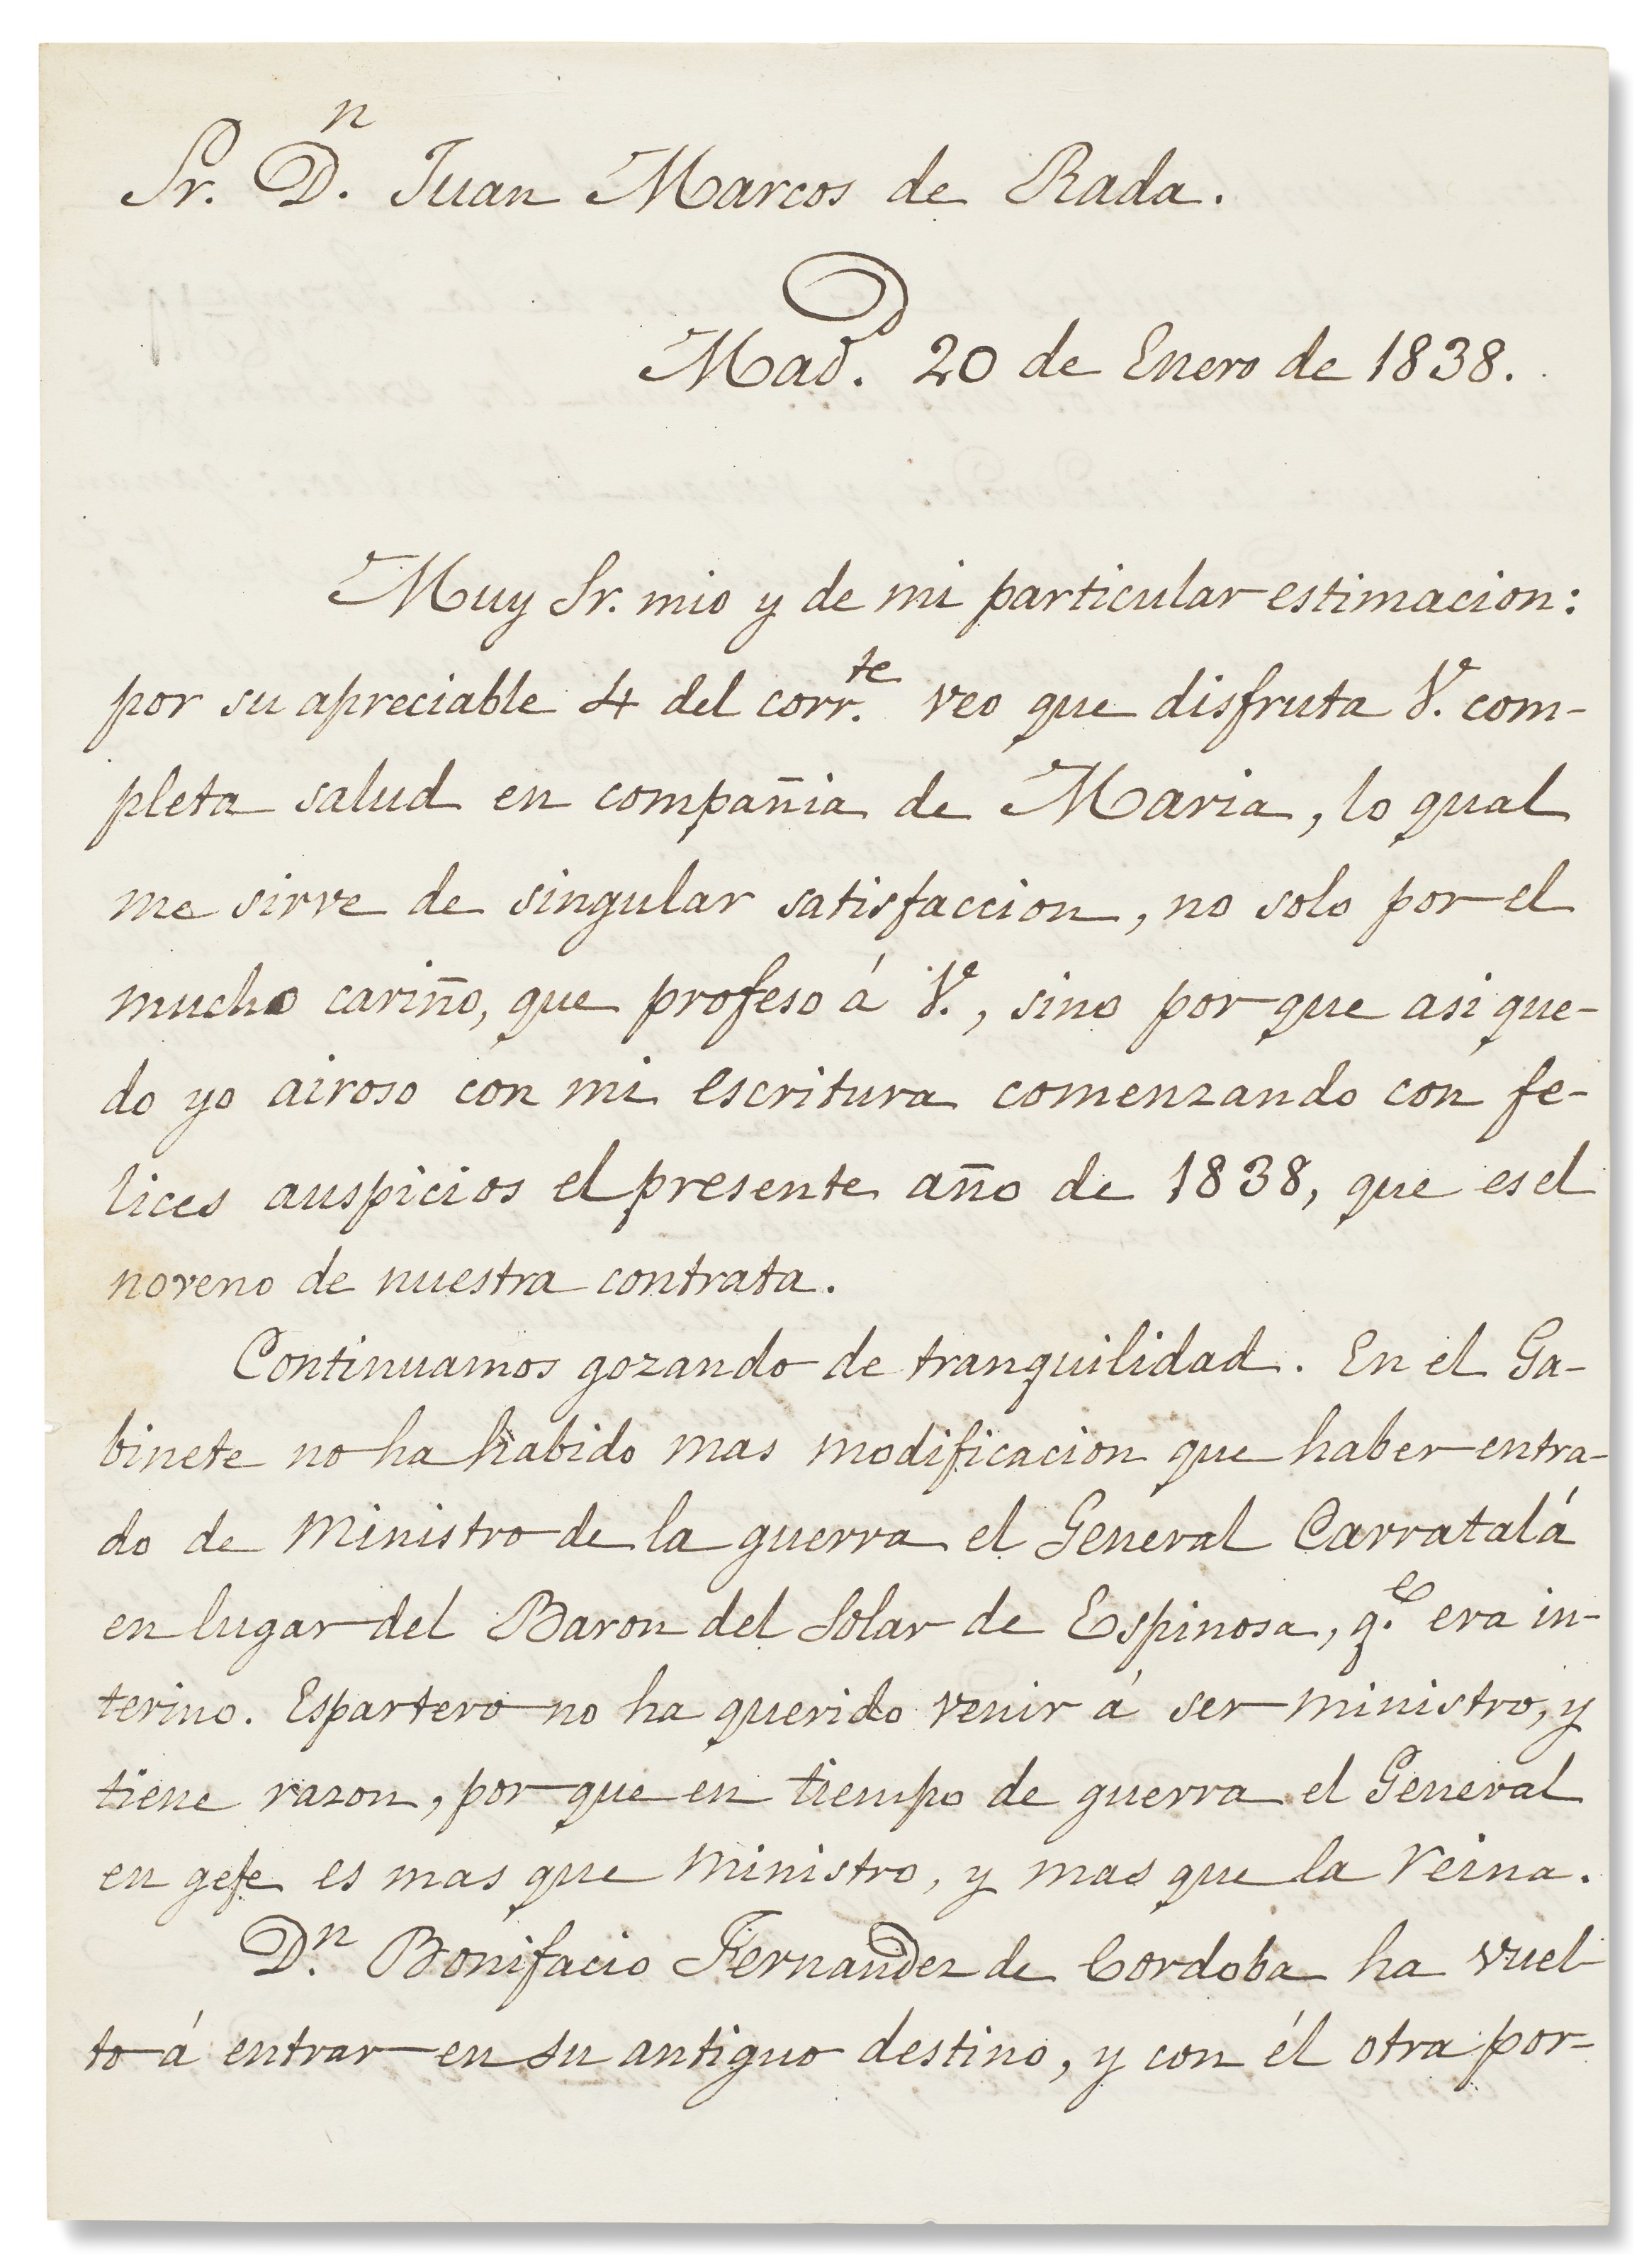 Sr. Dⁿ. Juan Marcos de Rada.
Madᵈ. 20 de Enero de 1838.
Muy Sr. mio y de mi particular estimacion:
por su apreciable 4 del corr.ᵗᵉ veo que disfruta V. com-
pleta salud en compañia de Maria, lo qual
me sirve de singular satisfaccion, no solo por el
mucho cariño, que profeso á V., sino por que asi que-
do yo airoso con mi escritura comenzando con fe-
lices auspicios el presente año de 1838, que es el
noveno de nuestra contrata.
Continuamos gozando de tranquilidad. En el Ga-
binete no ha habido mas modificacion que haber entra-
do de Ministro de la guerra el General Carratalá
en lugar del Baron del Solar de Espinosa, q.ᵉ era in-
terino. Espartero no ha querido venir á ser ministro, y
tiene razon, por que en tiempo de guerra el General
en gefe es mas que Ministro, y mas que la reina.
D.ⁿ Bonifacio Fernandez de Cordoba ha vuel-
to á entrar en su antiguo destino, y con él otra por-